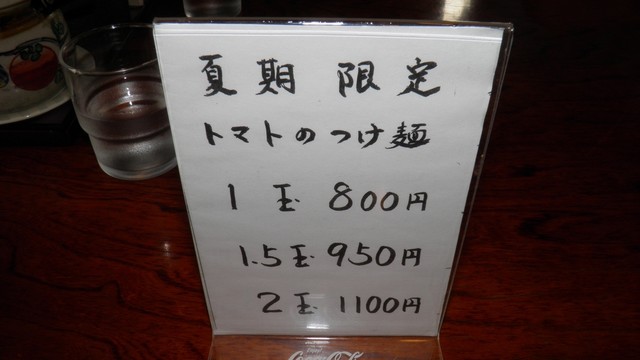 夏期 限定
トマトのつけ麺
1 玉 800円
1.5玉 950円
2玉 1100円